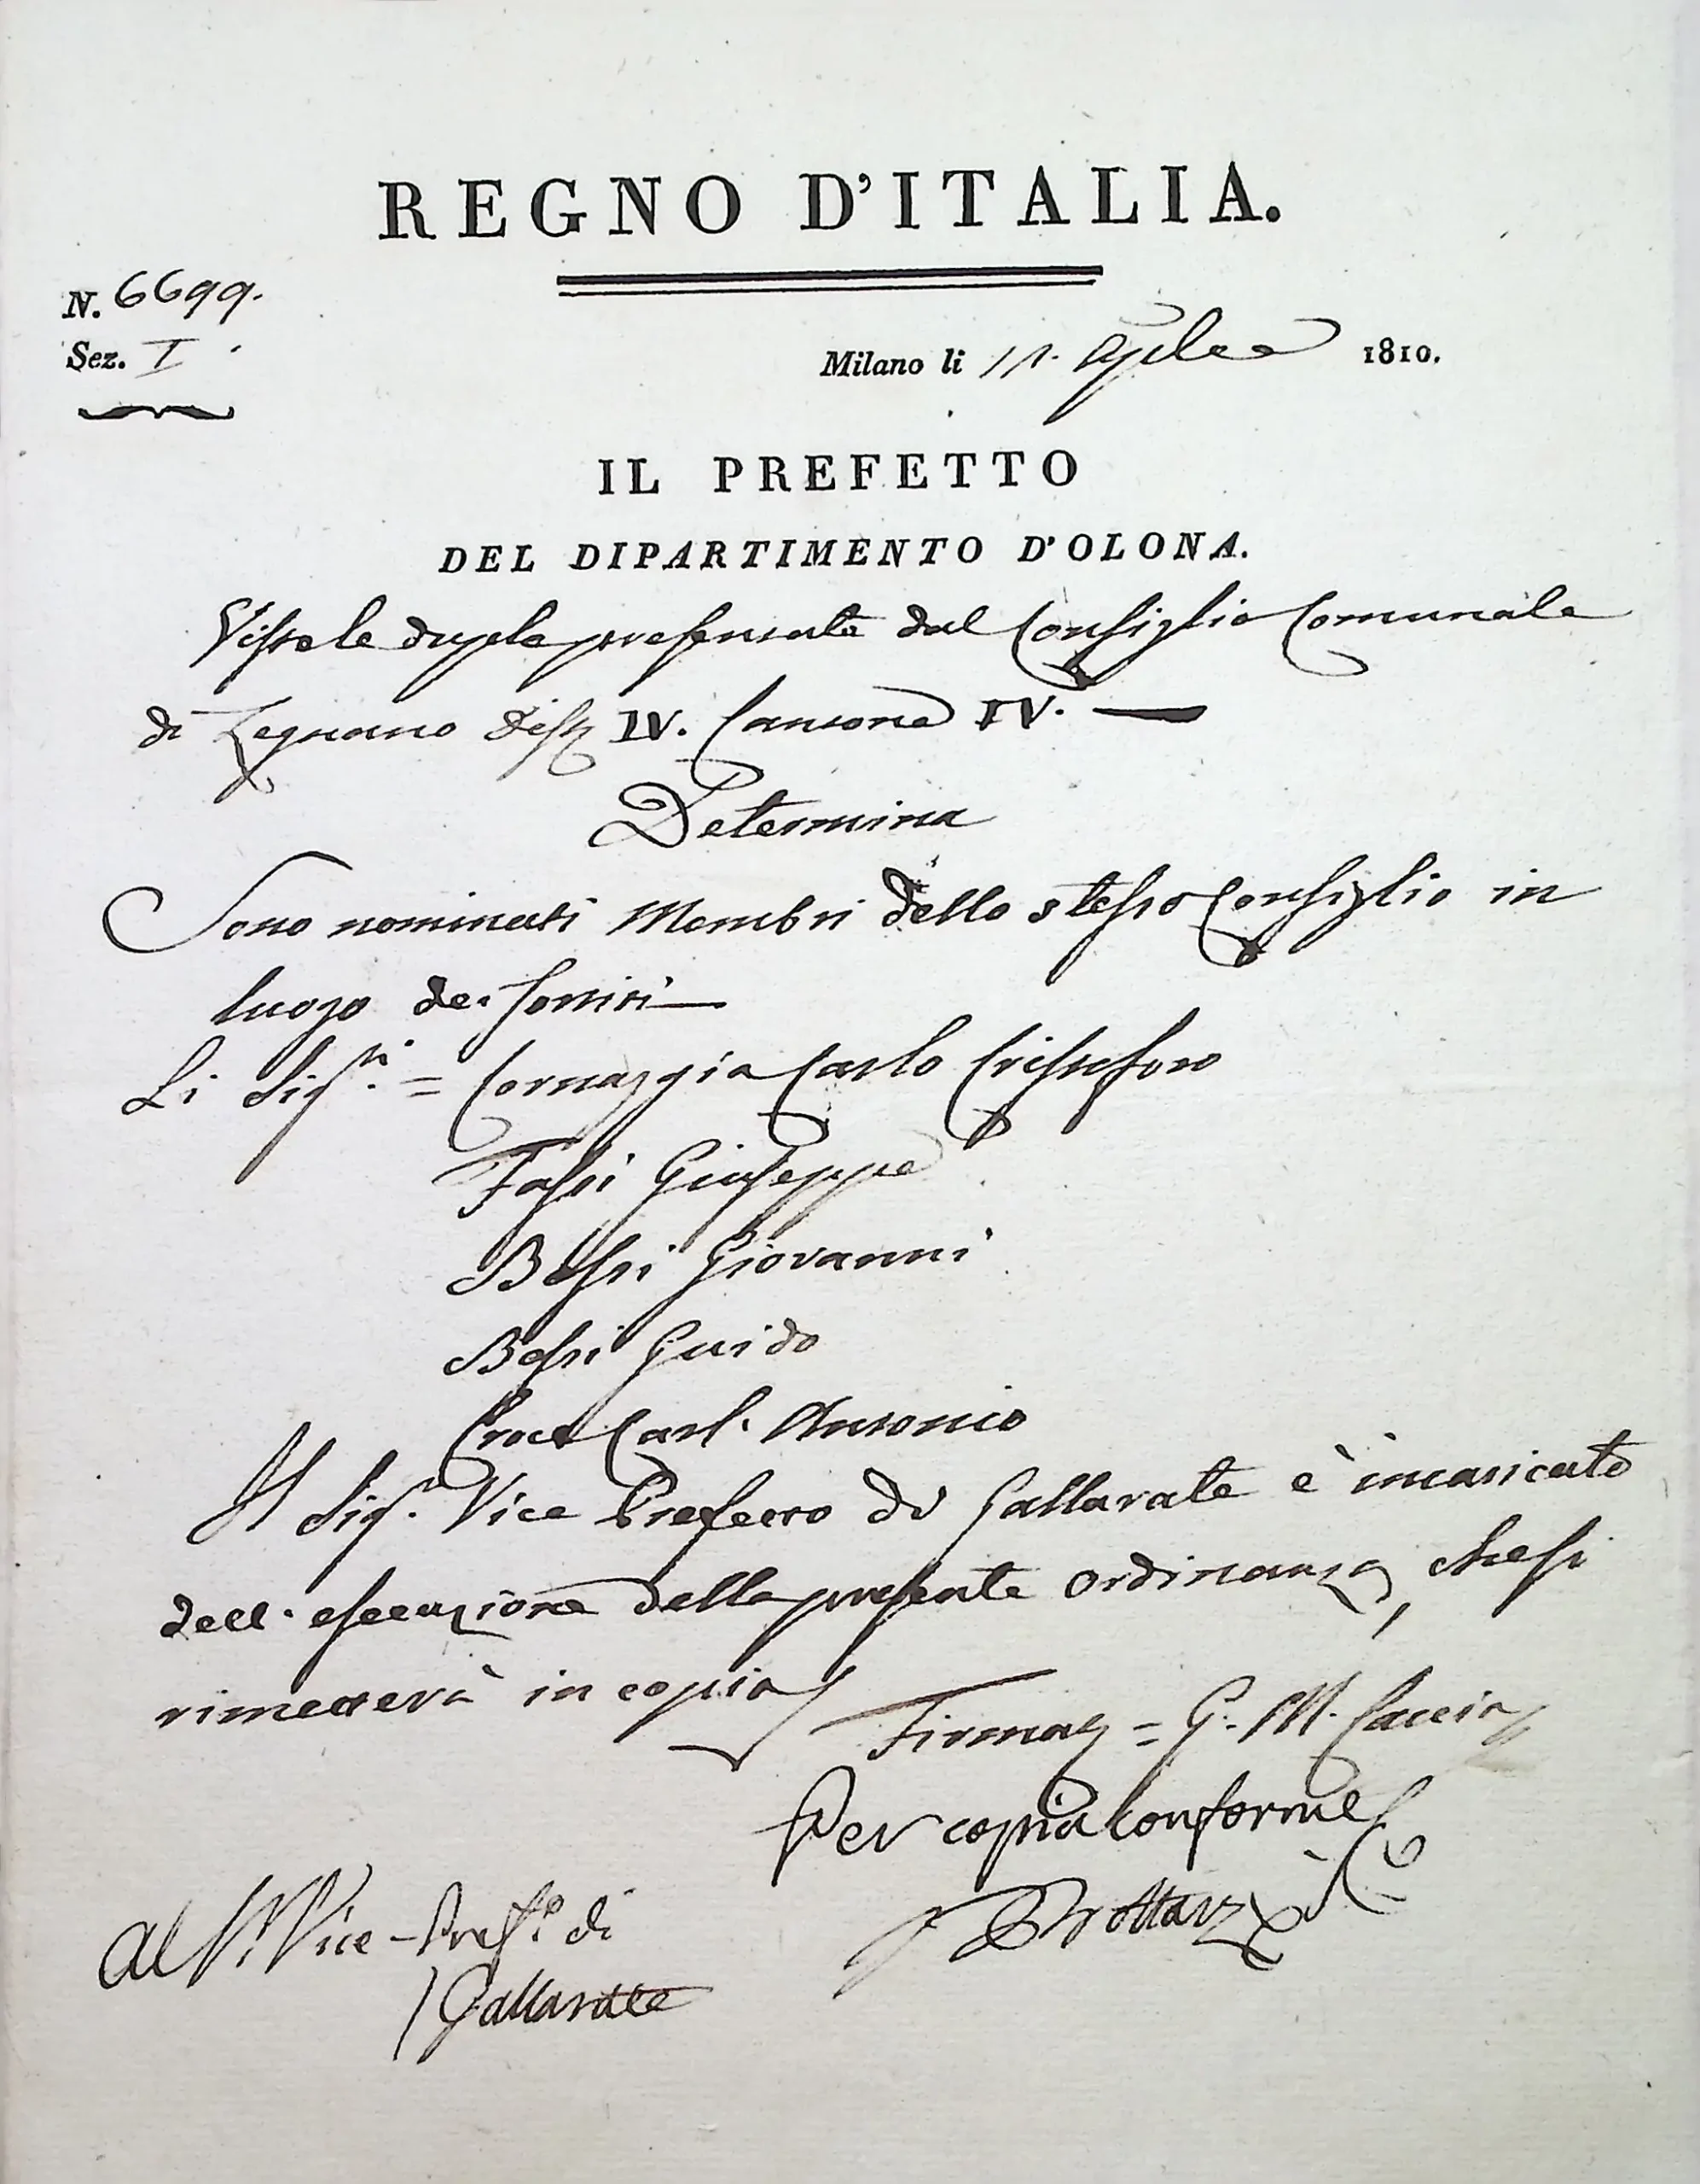 REGNO D'ITALIA.
N. 6699.
Sez. I
Milano li 11. Aprile 1810.
IL PREFETTO
DEL DIPARTIMENTO D'OLONA.
Viste le duple presentate dal Consiglio Comunale
di Legnano Dist. IV. Cantone IV.
Determina
Sono nominati Membri dello stesso Consiglio in
luogo de' sortiti
Li Sigri. = Cornaggia Carlo Cristoforo
Fassi Giuseppe
Bossi Giovanni
Bossi Guido
Croce Carl' Antonio
Il Sigr. Vice Prefetto di Gallarate è incaricato
dell' esecuzione della presente ordinanza, che si
rimetterà in copia
Firmato = G. M. Caccia
Per copia conforme
Al Sr. Vice-Prefo. di
Gallarate